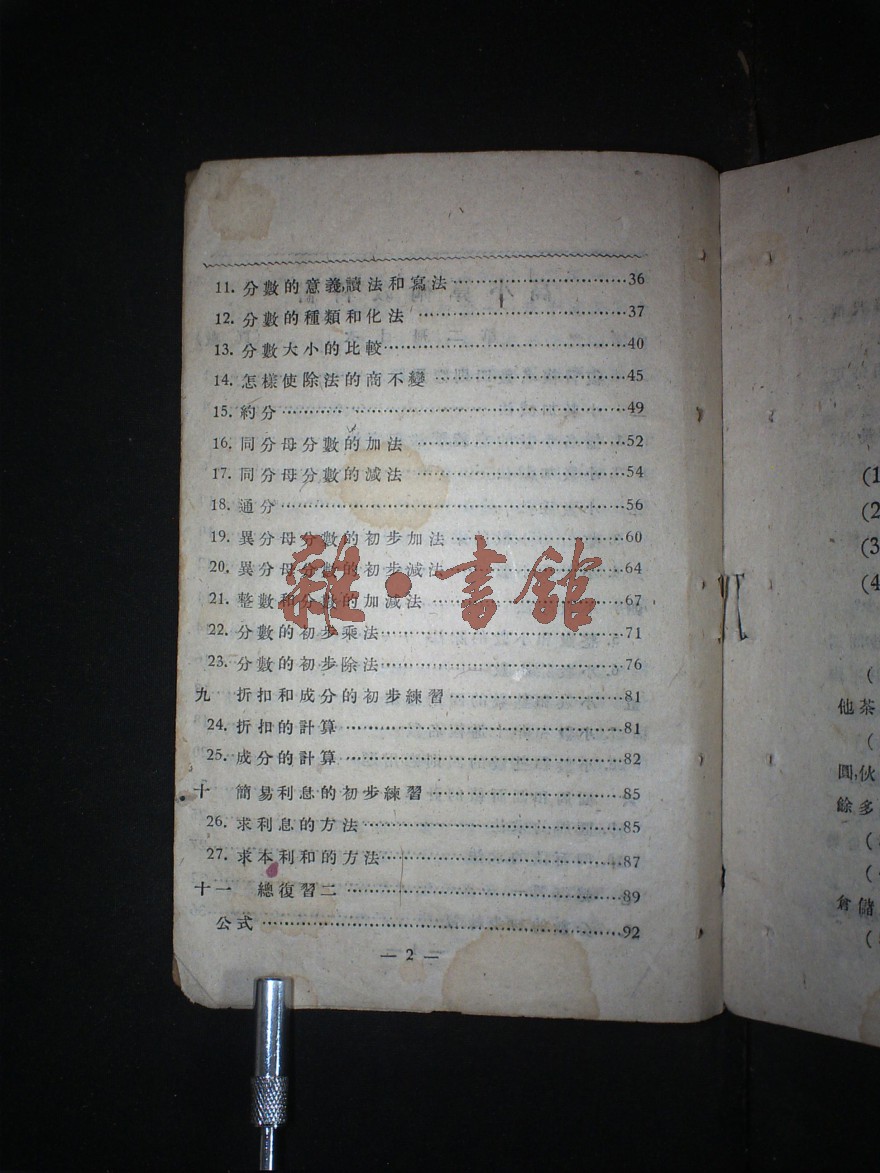 11. 分數的意義,讀法和寫法…………36
12. 分數的種類和化法…………37
13. 分數大小的比較…………40
14. 怎樣使除法的商不變…………45
15. 約分…………49
16. 同分母分數的加法…………52
17. 同分母分數的減法…………54
18. 通分…………56
19. 異分母分數的初步加法…………60
20. 異分母分數的初步減法…………64
21. 整數和分數的加減法…………67
22. 分數的初步乘法…………71
23. 分數的初步除法…………76
九 折扣和成分的初步練習…………81
24. 折扣的計算…………81
25. 成分的計算…………82
十 簡易利息的初步練習…………85
26. 求利息的方法…………85
27. 求本利和的方法…………87
十一 總復習二…………89
公式…………92
— 2 —
雜·書館
(1
(2
(3
(4
(
他茶
(
圓,伙
餘多
(
(
倉儲
(